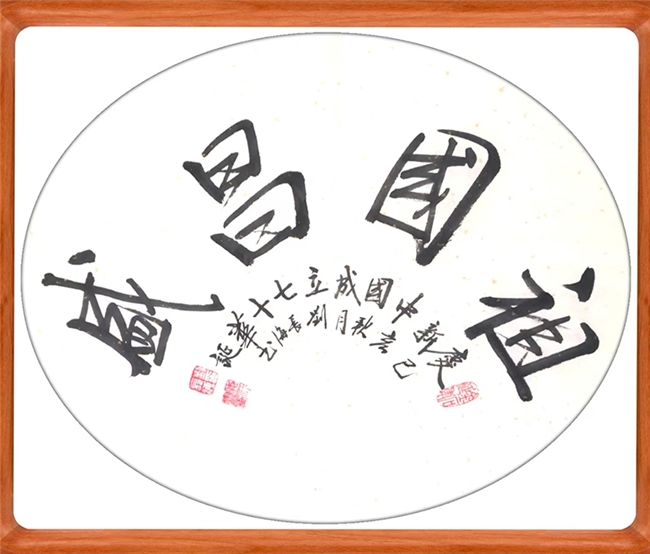 祖國昌盛
慶新中國成立七十華誕
己亥秋月劉長海书